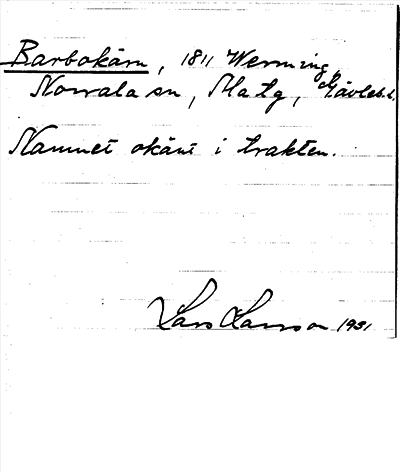 Barbokärn, 1811 Werming,
Norrala sn, Matg, Gävleb.l.
Namnet okänt i trakten.
Lars Larsson 1931